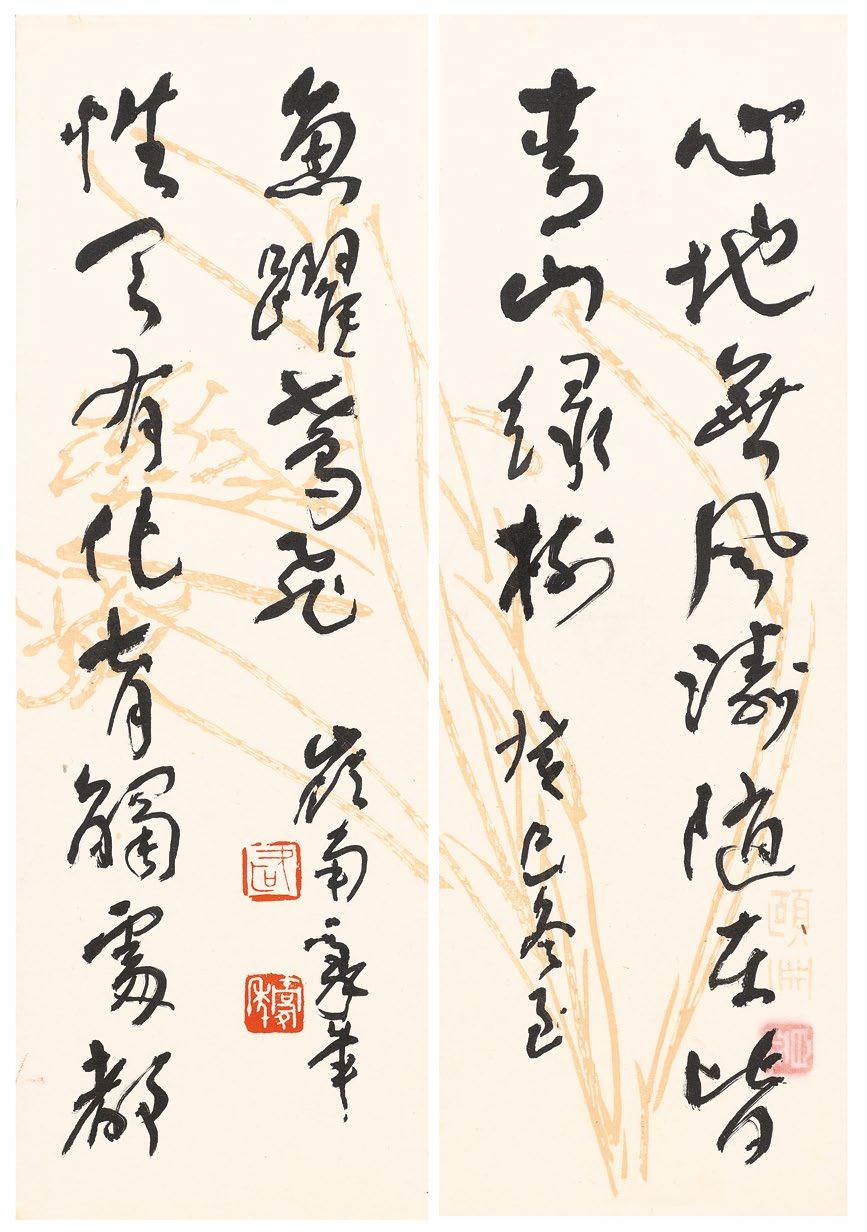 心地無風濤隨在皆
青山綠樹
癸巳冬至
性天有化育觸處都
魚躍鳶飛
嶺南
頤淵